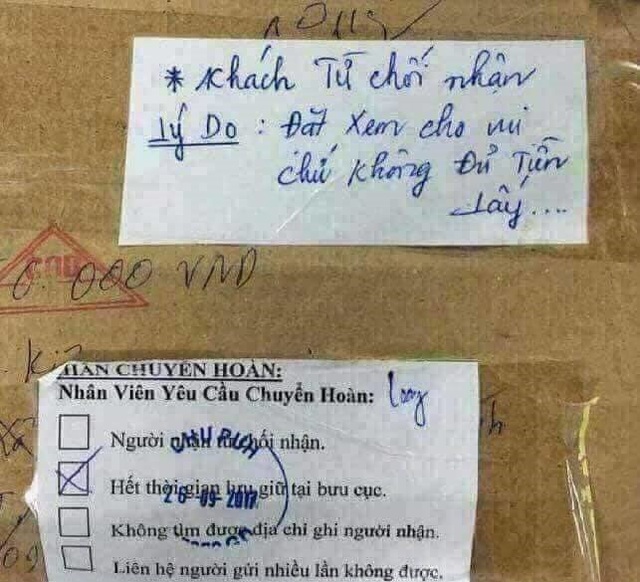 * Khách Từ chối nhận
Lý Do : Đặt Xem cho vui
chứ không Đủ Tiền
Lấy....
0.000 VND
CHUYỂN HOÀN:
Nhân Viên Yêu Cầu Chuyển Hoàn: Long
Người nhận từ chối nhận.
Hết thời gian lưu giữ tại bưu cục.
26-09-2017
Không tìm được địa chỉ ghi người nhận.
Liên hệ người gửi nhiều lần không được.